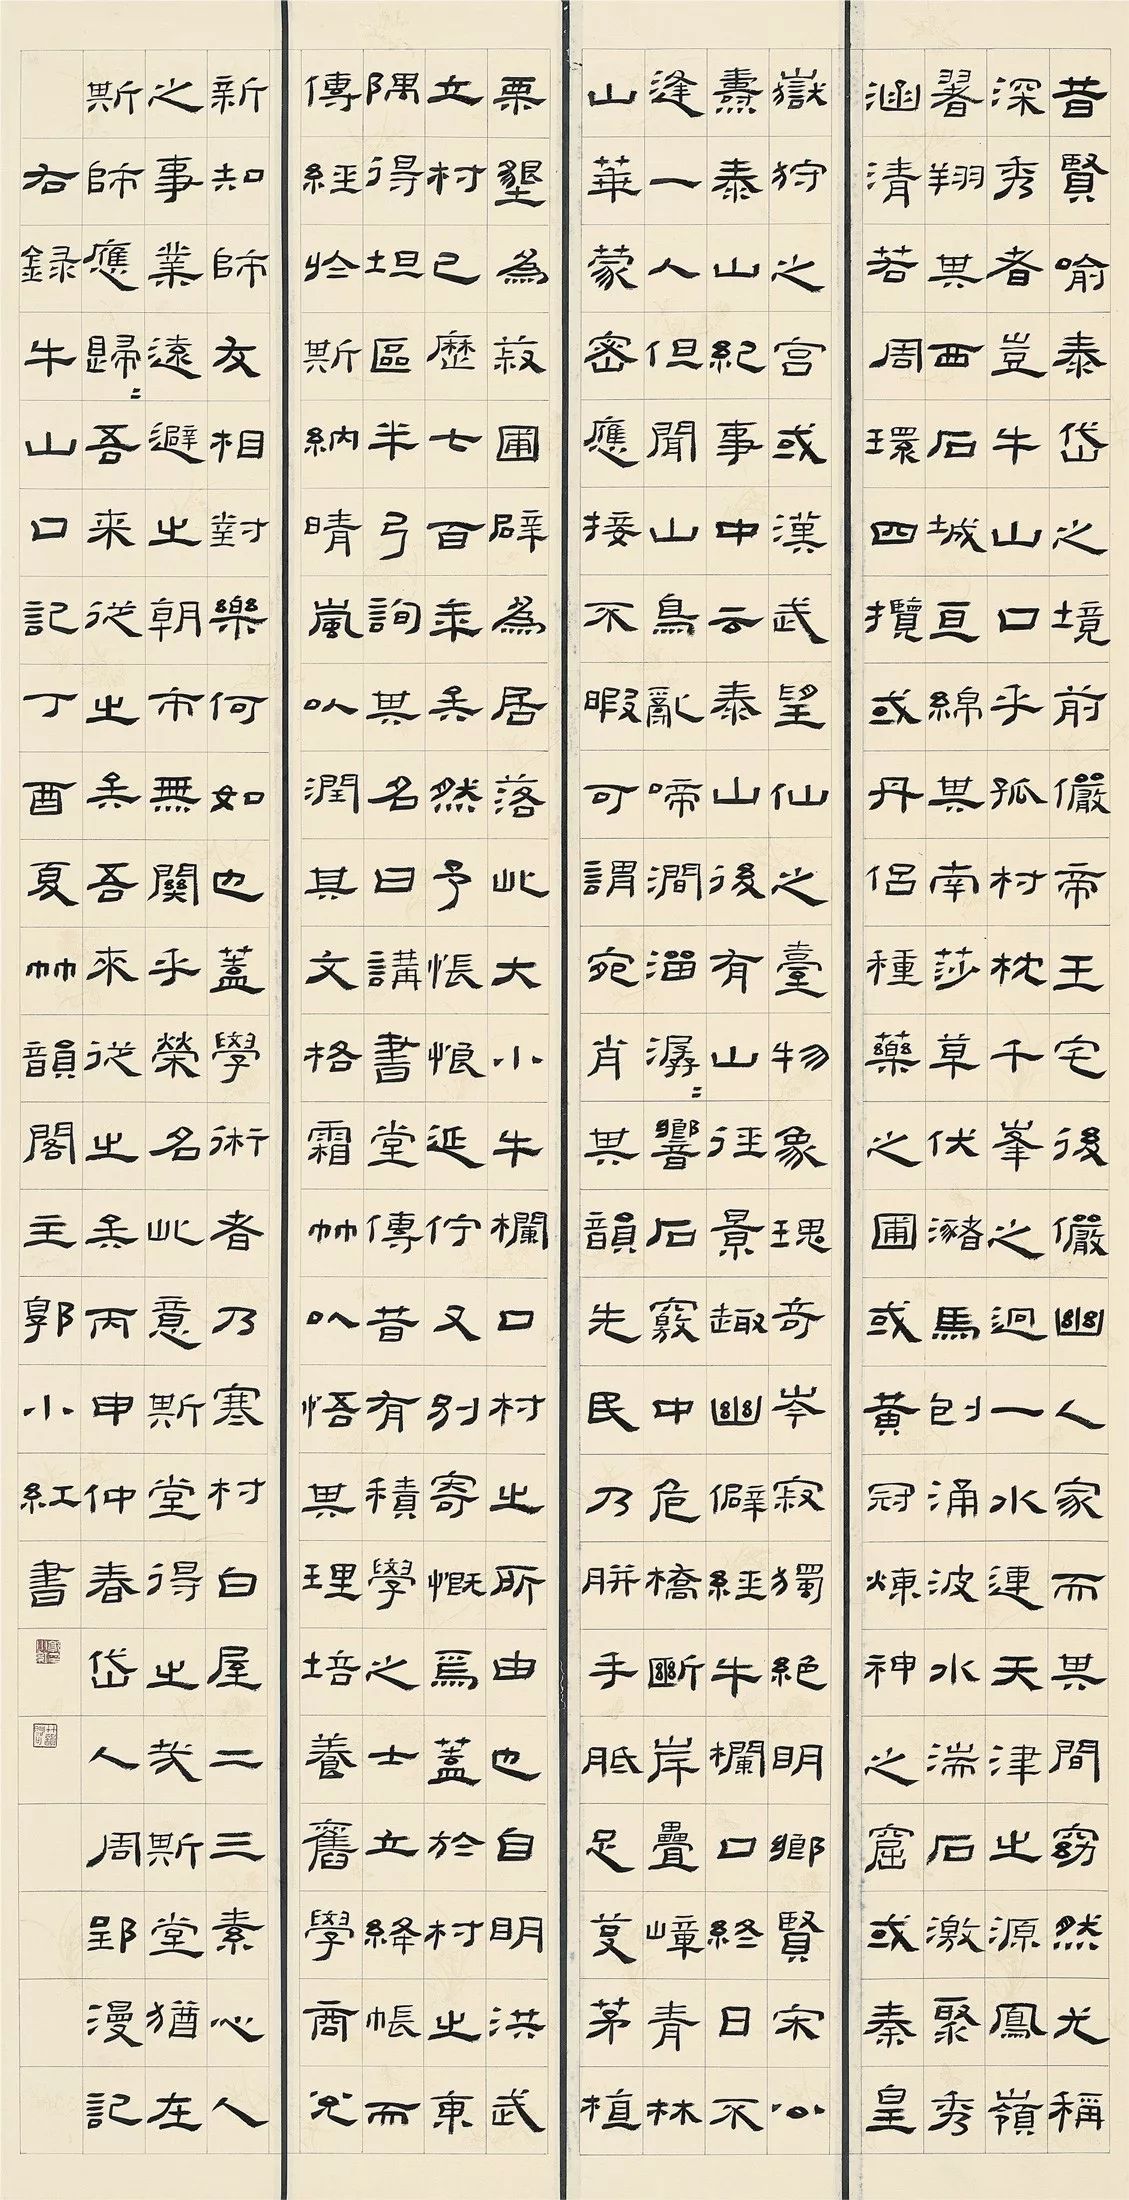 昔賢喻泰岱之境前儼帝王宅後儼幽人家而其間窈然尤稱
深秀者豈牛山口乎孤村枕千峯之迥一水連天津之源鳳嶺
翥翔其西石城亘綿其南莎草伏瀦馬刨涌波水湍石激聚秀
涵清若周環四攬或丹侶種藥之圃或黃冠煉神之窟或秦皇
嶽狩之宮或漢武望仙之臺物象瑰奇岑寂獨絕明鄉賢宋公
燾泰山紀事中云泰山後有山徑景趣幽僻經牛欄口終日不
逢一人但聞山鳥亂啼澗溜潺〻響石竅中危橋斷岸疊嶂青林
山華蒙密應接不暇可謂宛肖其韻先民乃胼手胝足芟茅植
栗墾為菽圃辟為居落此大小牛欄口村之所由也自明洪武
立村已歷七百年矣然予悵悢延佇又別寄慨焉蓋於村之東
隅得坦區半弓詢其名曰講書堂傳昔有積學之士立絳帳而
傳經於斯納晴嵐以潤其文格霜竹以悟其理培養舊學商兌
新知師友相對樂何如也蓋學術者乃寒村白屋二三素心人
之事業遠避之朝市無關乎榮名此意斯堂得之哉斯堂猶在
斯師應歸〻吾來從之矣吾來從之矣丙申仲春岱人周郢漫記
右錄牛山口記丁酉夏竹韻閣主郭小紅書